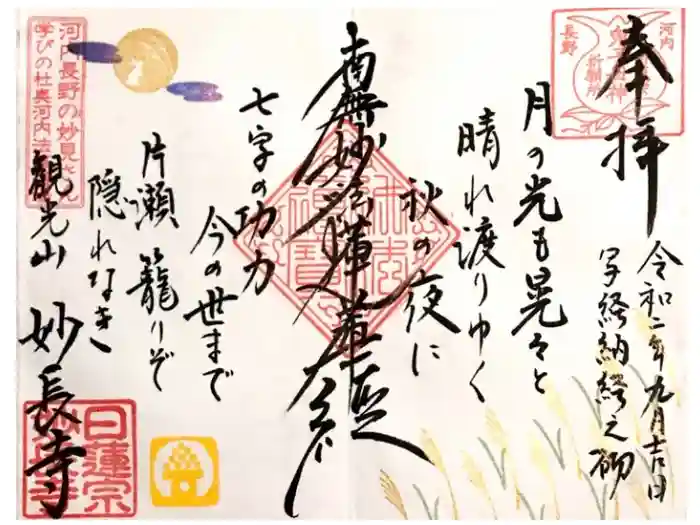 奉拝
令和二年九月吉日
写経納経之砌
月の光も晃々と
晴れ渡りゆく
秋の夜に
南無妙法蓮華経
七字の功力
今の世まで
片瀬籠りぞ
隠れなき
観光山 妙長寺
河内
長野
祈願所
河内長野の妙見さん
学びの杜奥河内法
日蓮宗
妙長寺